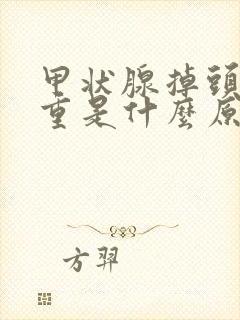 甲状腺掉頭
重是什麼原
方羿